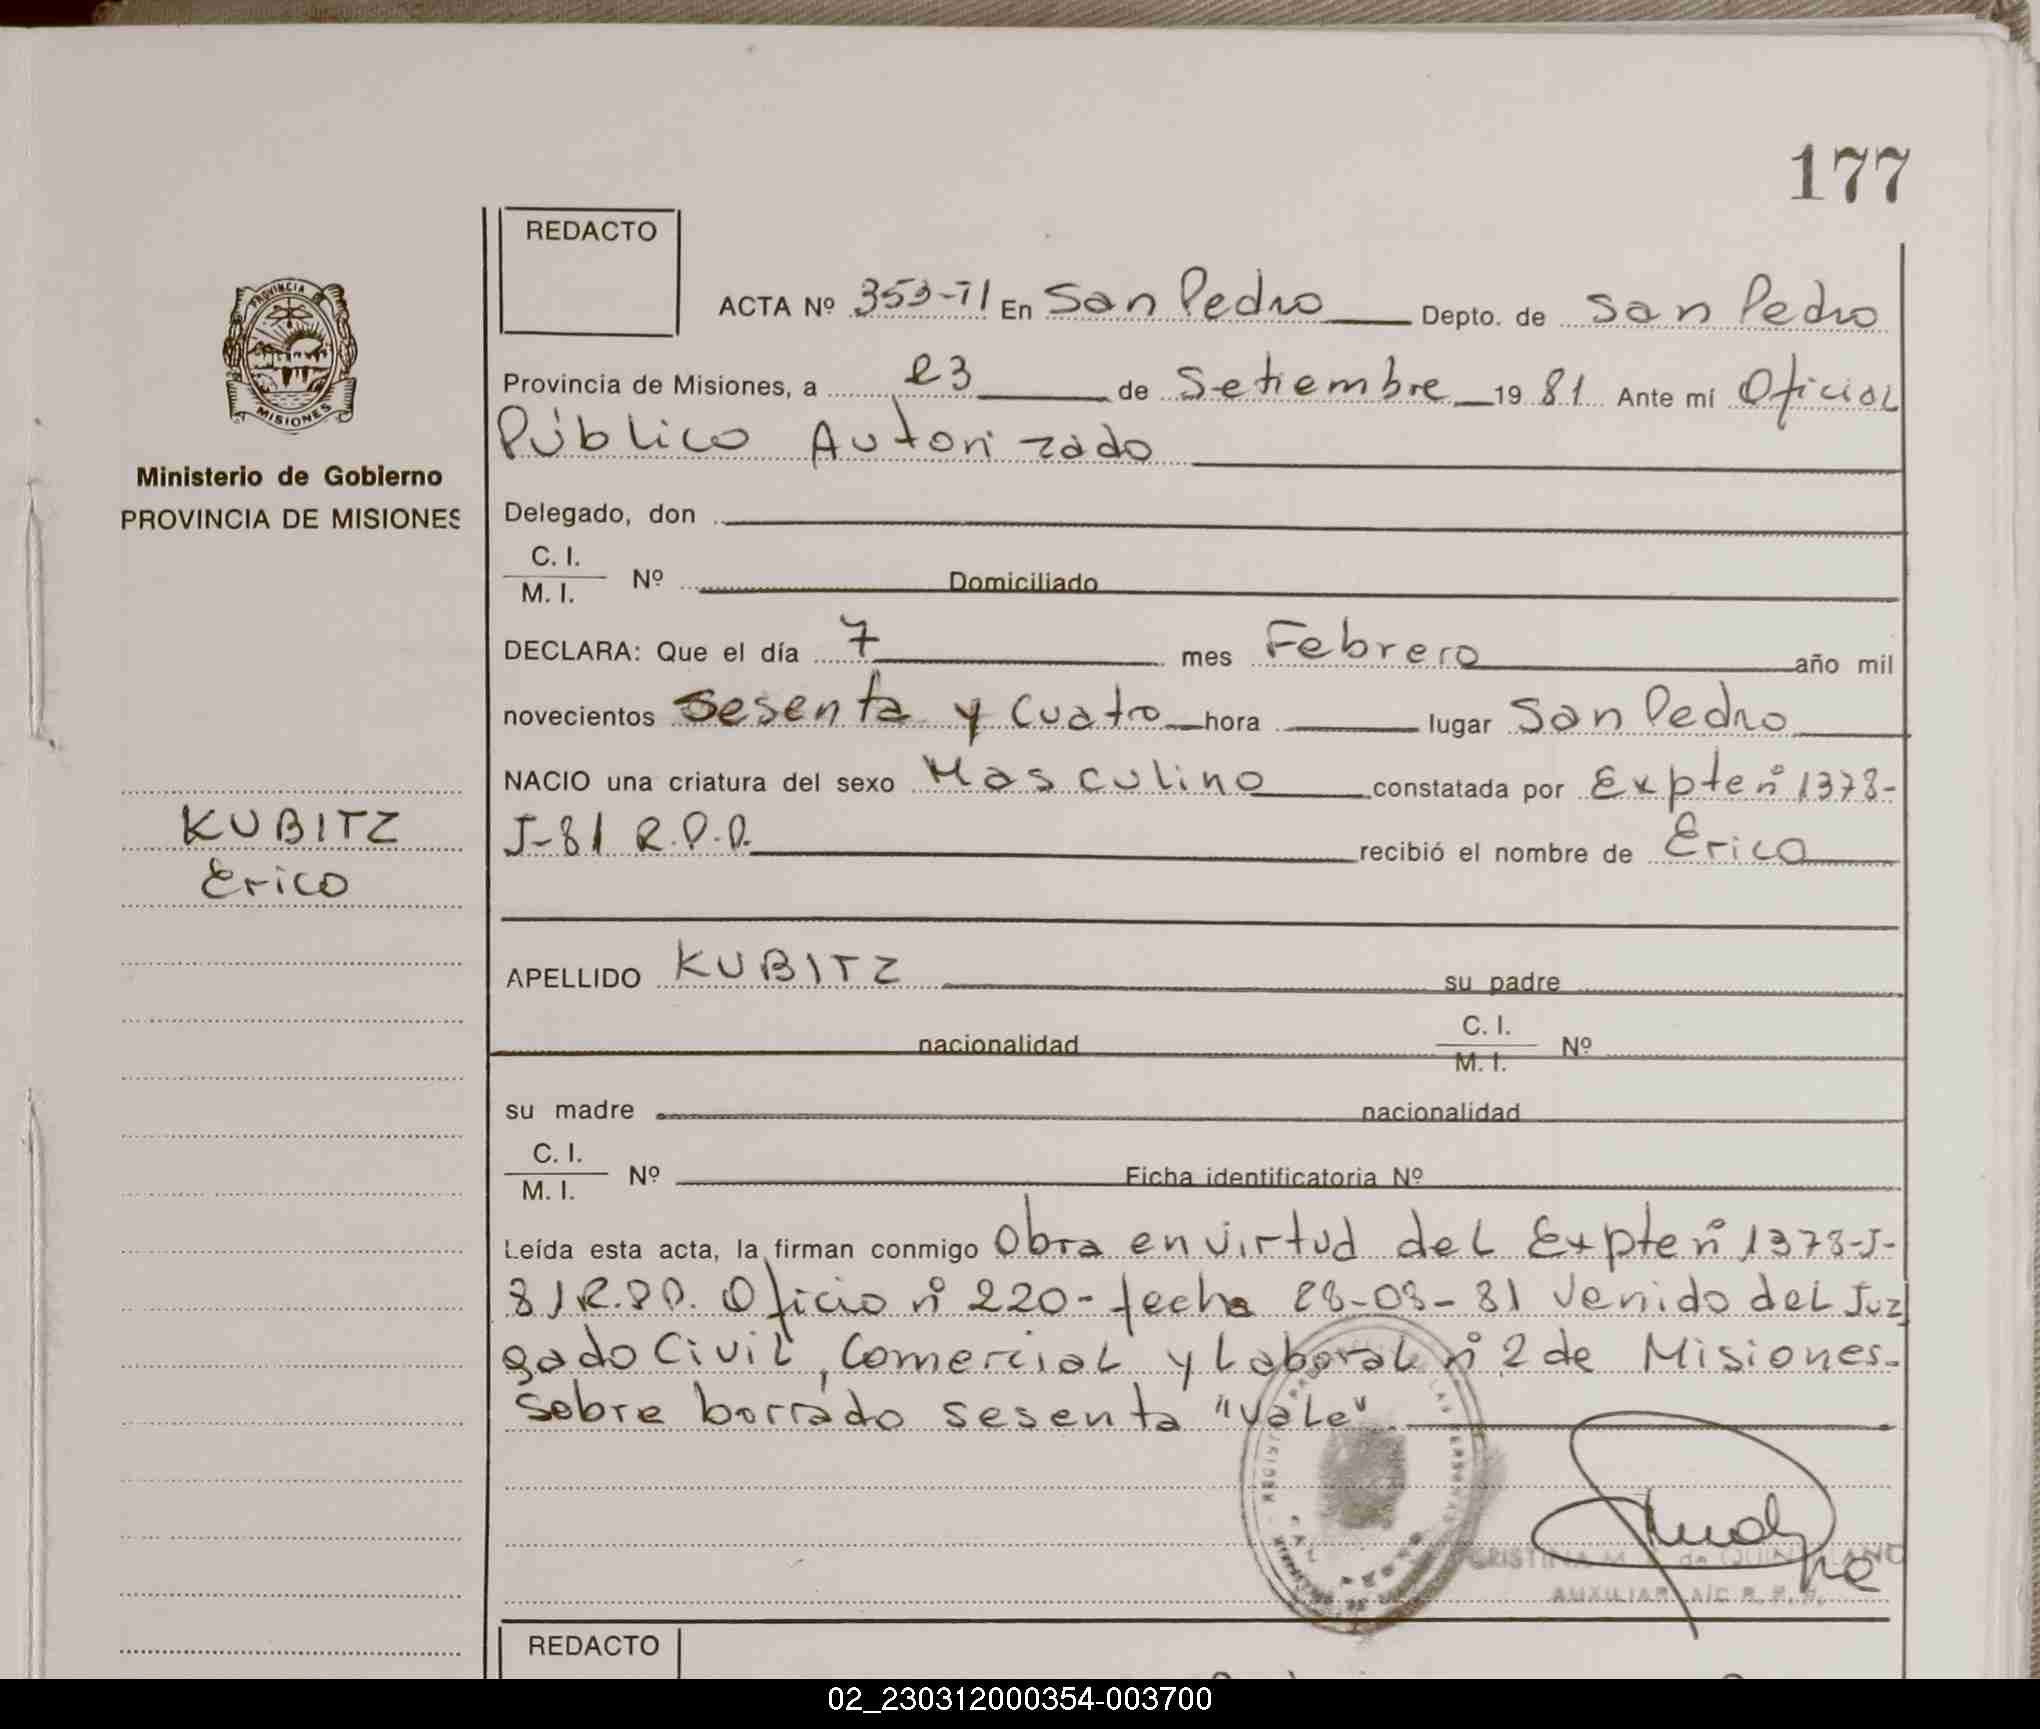 177
REDACTO
PROVINCIA
MISIONES
ACTA Nº 353-TI En San Pedro Depto. de San Pedro
Provincia de Misiones, a 23 de Setiembre 19 81 Ante mí Oficial
Público Autorizado
Ministerio de Gobierno
PROVINCIA DE MISIONES
Delegado, don
C. I.
M. I. Nº Domiciliado
DECLARA: Que el día 7 mes Febrero año mil
novecientos sesenta y cuatro hora lugar San Pedro
NACIO una criatura del sexo Masculino constatada por Expte nº 1378-
J-81 R.P.P. recibió el nombre de Erico
KUBITZ
Erico
APELLIDO KUBITZ su padre
nacionalidad C. I.
M. I. Nº
su madre nacionalidad
C. I.
M. I. Nº Ficha identificatoria Nº
Leída esta acta, la firman conmigo Obra en virtud del Expte nº 1378-J-
81 R.P.P. Oficio nº 220- fecha 28-08-81 venido del Juz
gado Civil, Comercial y Laboral nº 2 de Misiones.
Sobre borrado sesenta "Vale"
AUXILIAR A/C R. P. P.
REDACTO
02_230312000354-003700